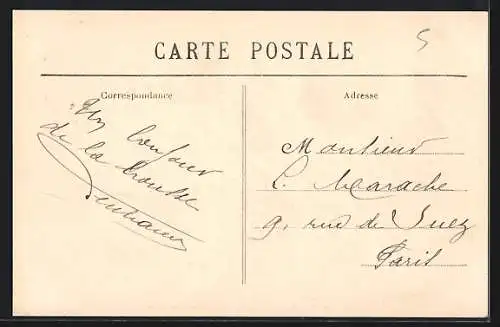 CARTE POSTALE
5
Correspondance
Un bonjour
de la brousse
Adresse
Monsieur
L. Marache
9, rue de Suez
Paris